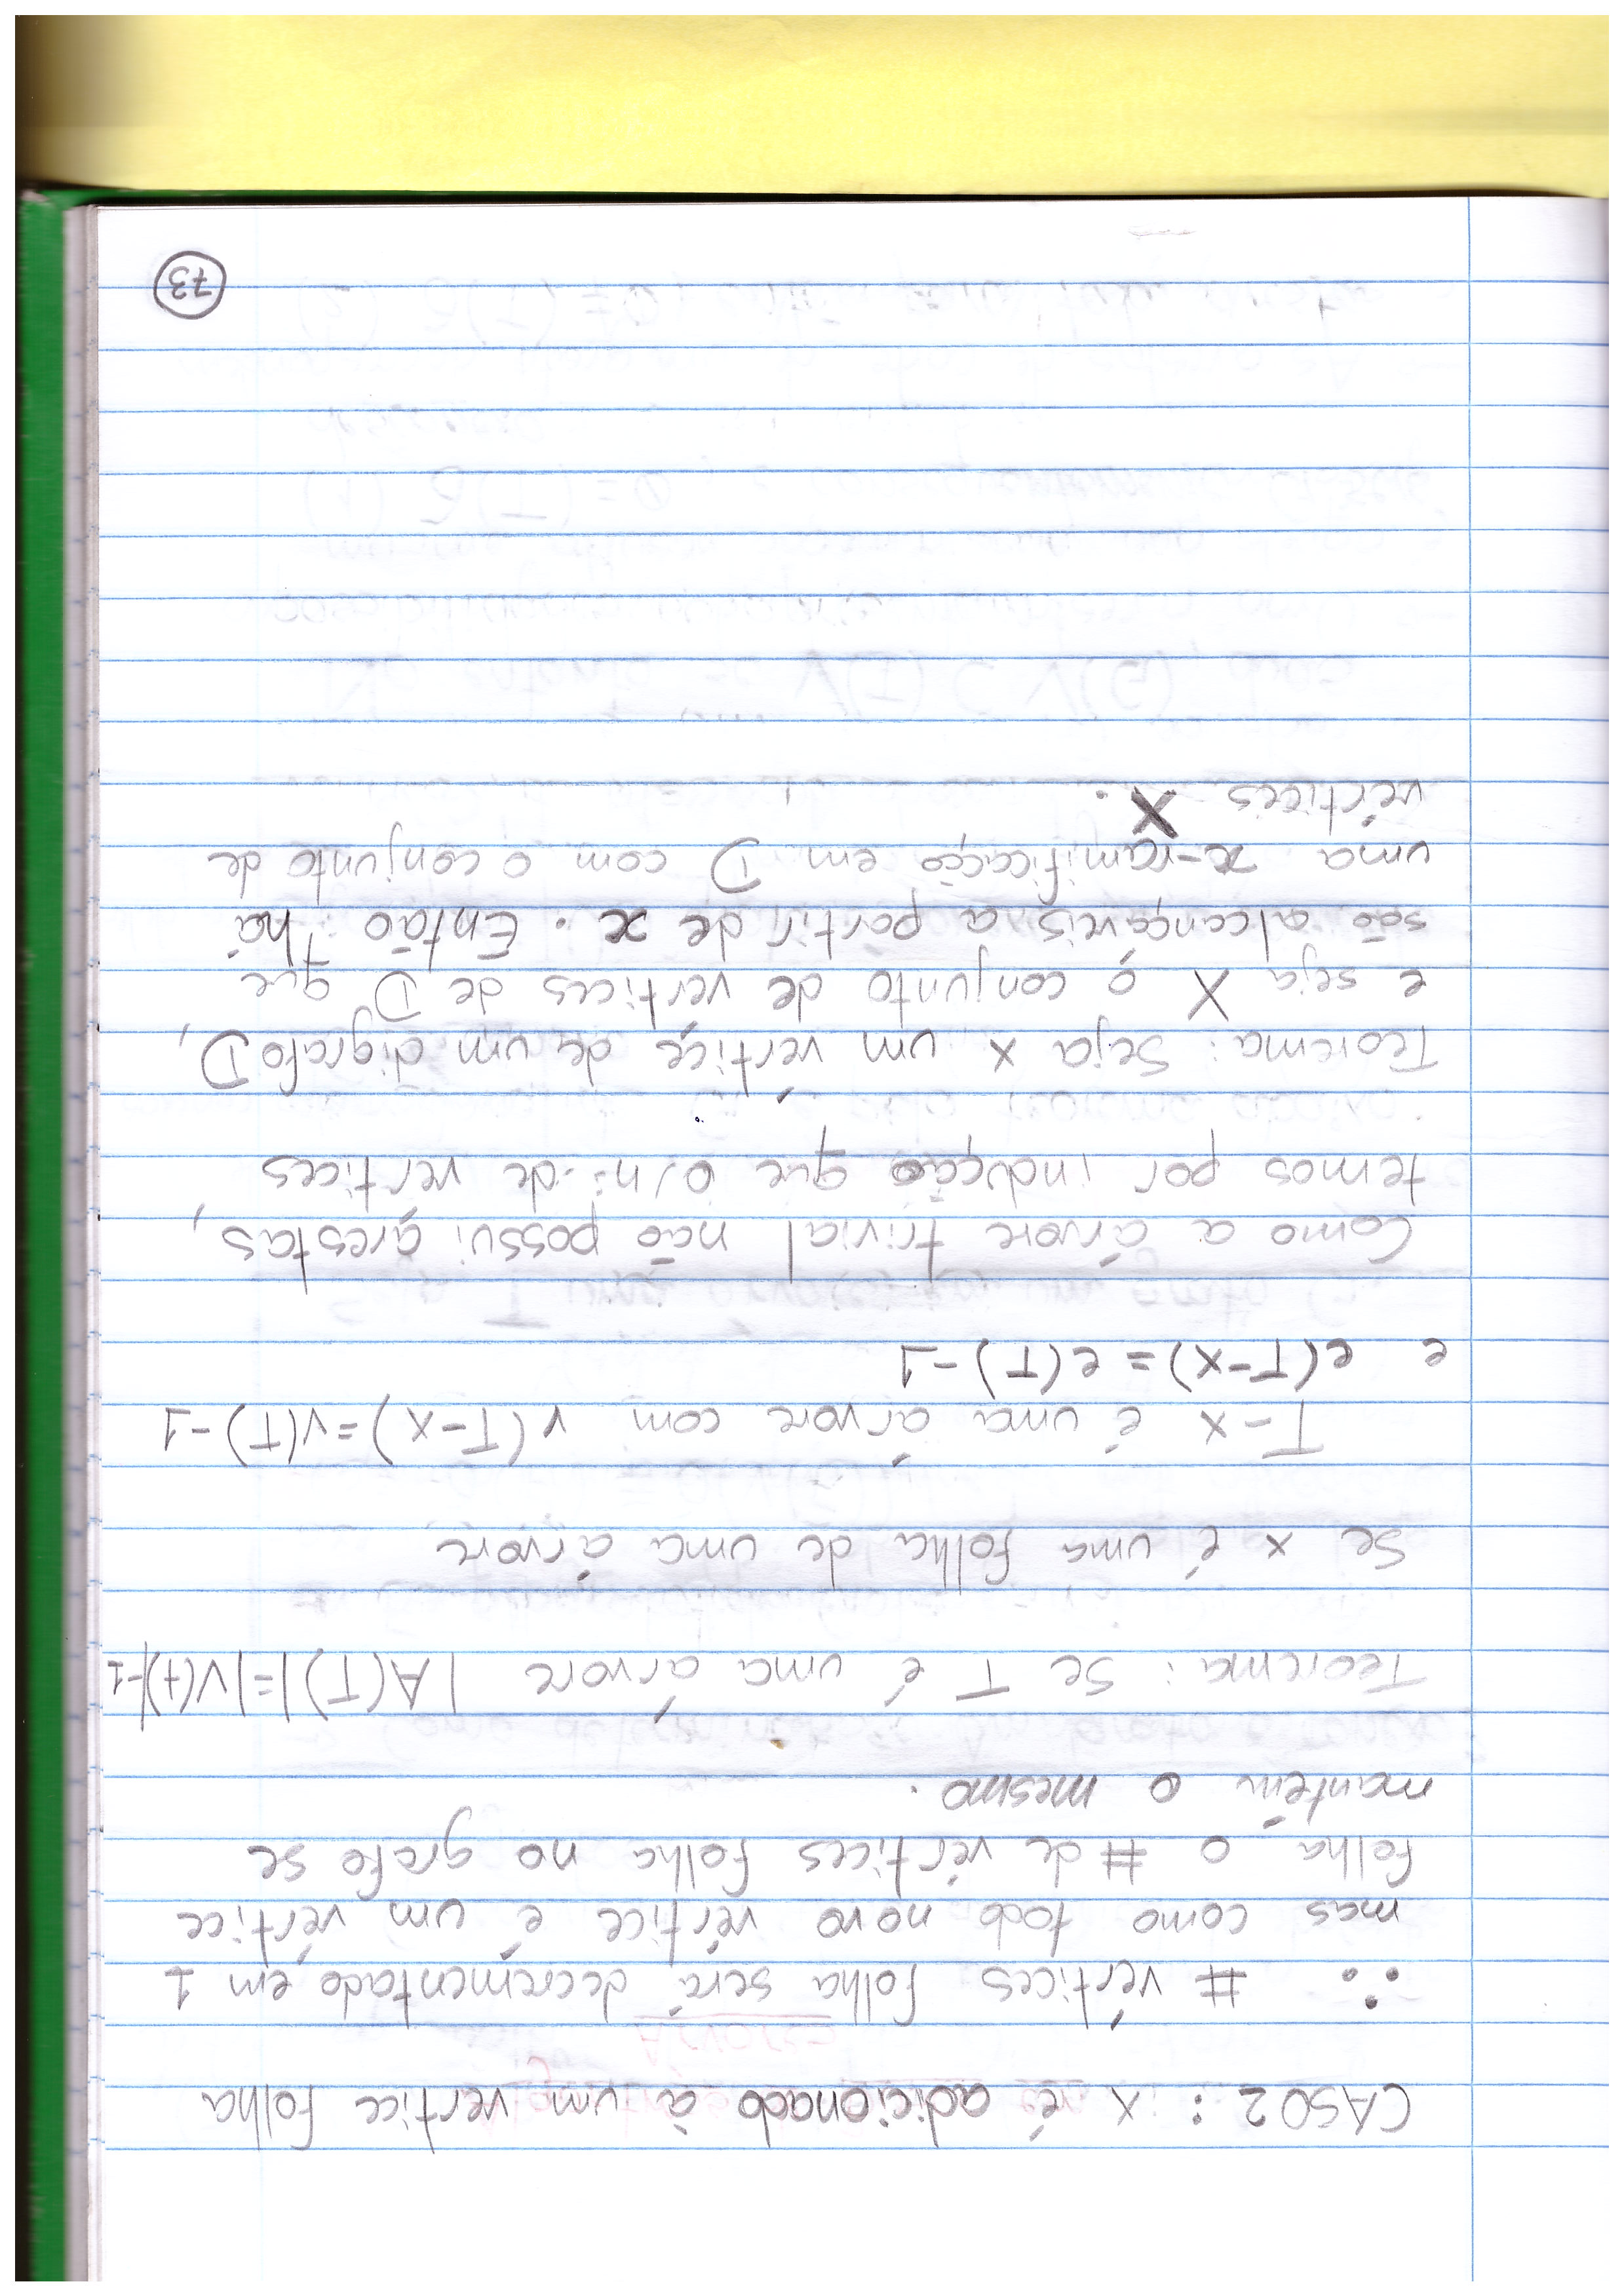 CASO 2 : x é adicionado à um vertice folha
∴ # vértices folha será decrementado em 1
mas como todo novo vértice é um vértice
folha o # de vértices folha no grafo se
mantém o mesmo.
Teorema: Se T é uma árvore |A(T)|=|V(t)|-1
Se x é uma folha de uma árvore
T-x é uma árvore com v(T-x)=v(T)-1
e e(T-x)=e(T)-1
Como a árvore trivial não possui arestas,
temos por indução que o nº de vértices
Teorema: Seja x um vértice de um digrafo D,
e seja X o conjunto de vértices de D que
são alcançáveis a partir de x. Então há
uma x-ramificação em D com o conjunto de
vértices X.
73